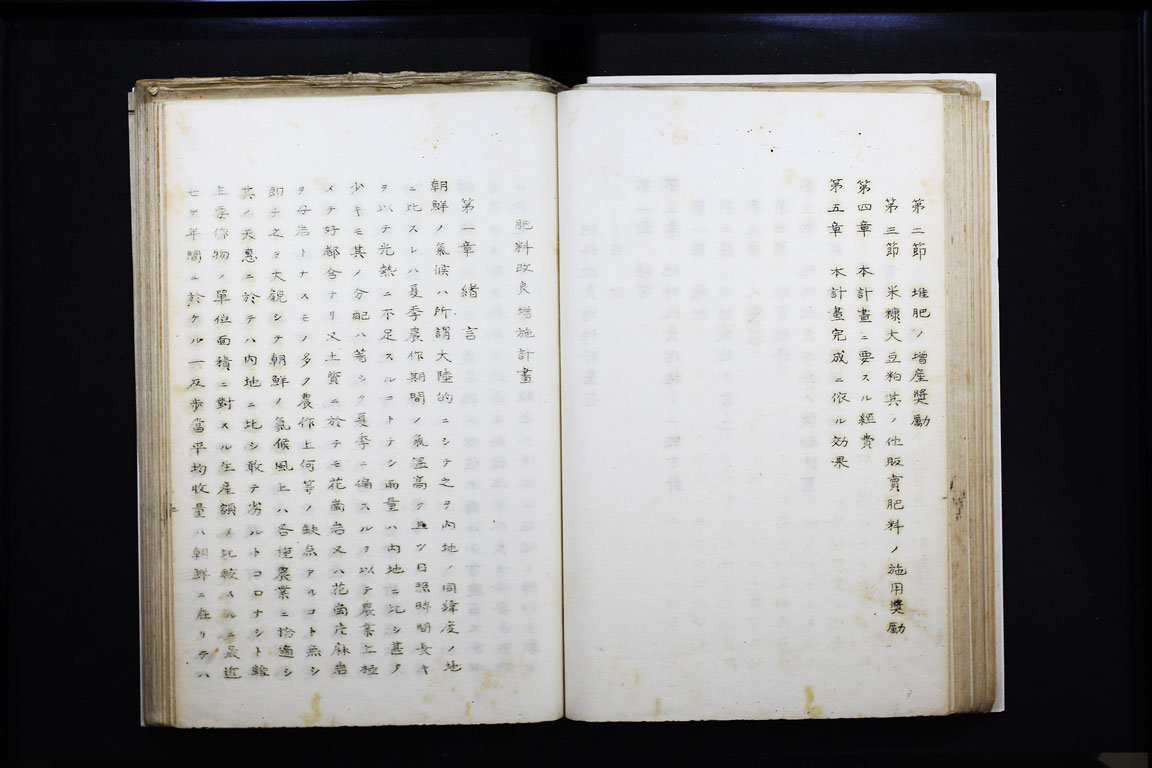 第二節 堆肥ノ增産獎勵
第三節 米糠大豆粕其ノ他販賣肥料ノ施用獎勵
第四章 本計畫ニ要スル經費
第五章 本計畫完成ニ依ル効果
肥料改良增施計畫
第一章 緒言
朝鮮ノ氣候ハ所謂大陸的ニシテ之ヲ內地ノ同緯度ノ地
ニ比スレハ夏季農作期間ノ氣溫高ク且ツ日照時間長キ
ヲ以テ光熱ニ不足スルコトナシ雨量ハ內地ニ比シ甚タ
少キモ其ノ分配ハ著シク夏季ニ偏スルヲ以テ農業上極
メテ好都合ナリ又土質ニ於テモ花崗岩又ハ花崗片麻岩
ヲ母岩トナスモノ多ク農作上何等ノ缺點アルコト無シ
即チ之ヲ大觀シテ朝鮮ノ氣候風土ハ各種農業ニ恰適シ
其ノ天惠ニ於テハ內地ニ比シ敢テ劣ルトコロナシト雖
主要作物ノ單位面積ニ對スル生産額ヲ比較スルニ最近
七ケ年間ニ於ケル一反步當平均收量ハ朝鮮ニ在リテハ